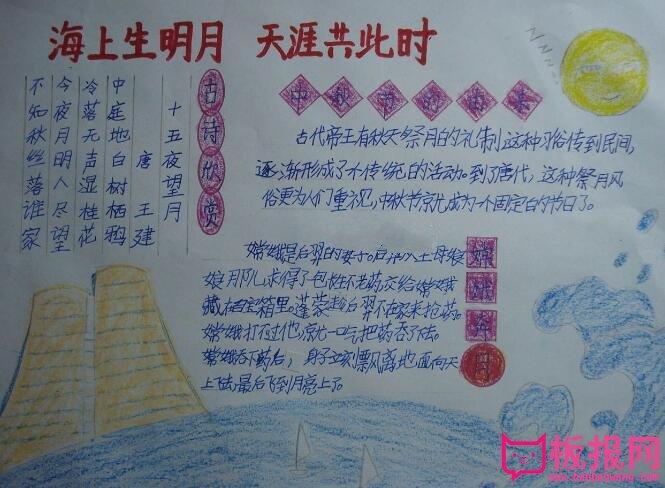 海上生明月 天涯共此时
古诗欣赏
十五夜望月
唐 王建
中庭地白树栖鸦
冷落无声湿桂花
今夜月明人尽望
不知秋丝落谁家
中秋节的由来
古代帝王有秋天祭月的礼制,这种习俗传到民间,
逐渐形成了个传统的活动。到了唐代,这种祭月风
俗更为人们重视,中秋节就成为一个固定的节日了。
嫦娥奔月
嫦娥是后羿的妻子。后羿从王母娘
娘那儿求得了包长不老药交给嫦娥
藏在百宝箱里。蓬蒙趁后羿不在家来抢药。
嫦娥打不过他,就一口气把药吞了下去。
嫦娥吞下药后,身子立刻飘风离地面向天
上飞去,最后飞到月亮上了。
NNNN
板报网